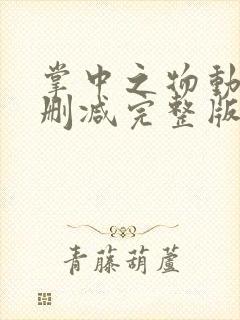 掌中之物動
刪减完整版
青藤葫蘆